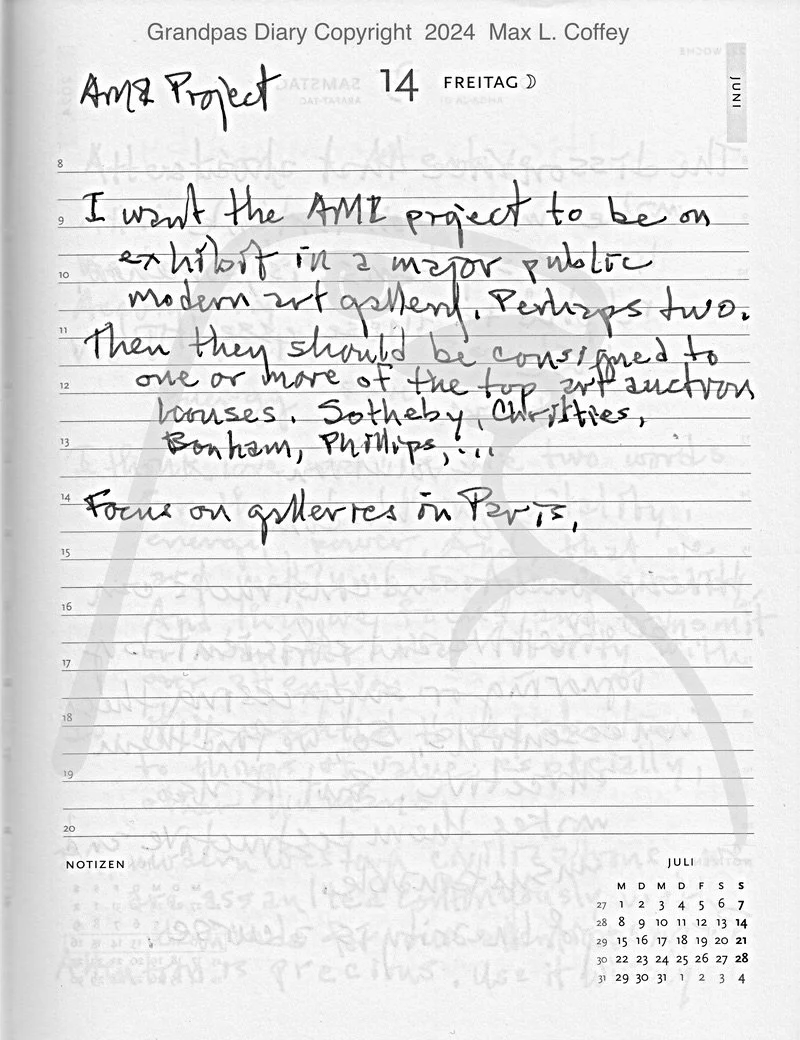 Grandpas Diary Copyright 2024 Max L. Coffey
AME Project 14 FREITAG
JUNI
8
9 I want the AME project to be on
exhibit in a major public
10
modern art gallery. Perhaps two.
11 Then they should be consigned to
12 one or more of the top art auction
houses. Sotheby, Christies,
13 Bonham, Phillips, ...
14 Focus on galleries in Paris.
15
16
17
18
19
20
NOTIZEN
JULI
M D M D F S S
27 1 2 3 4 5 6 7
28 8 9 10 11 12 13 14
29 15 16 17 18 19 20 21
30 22 23 24 25 26 27 28
31 29 30 31 1 2 3 4